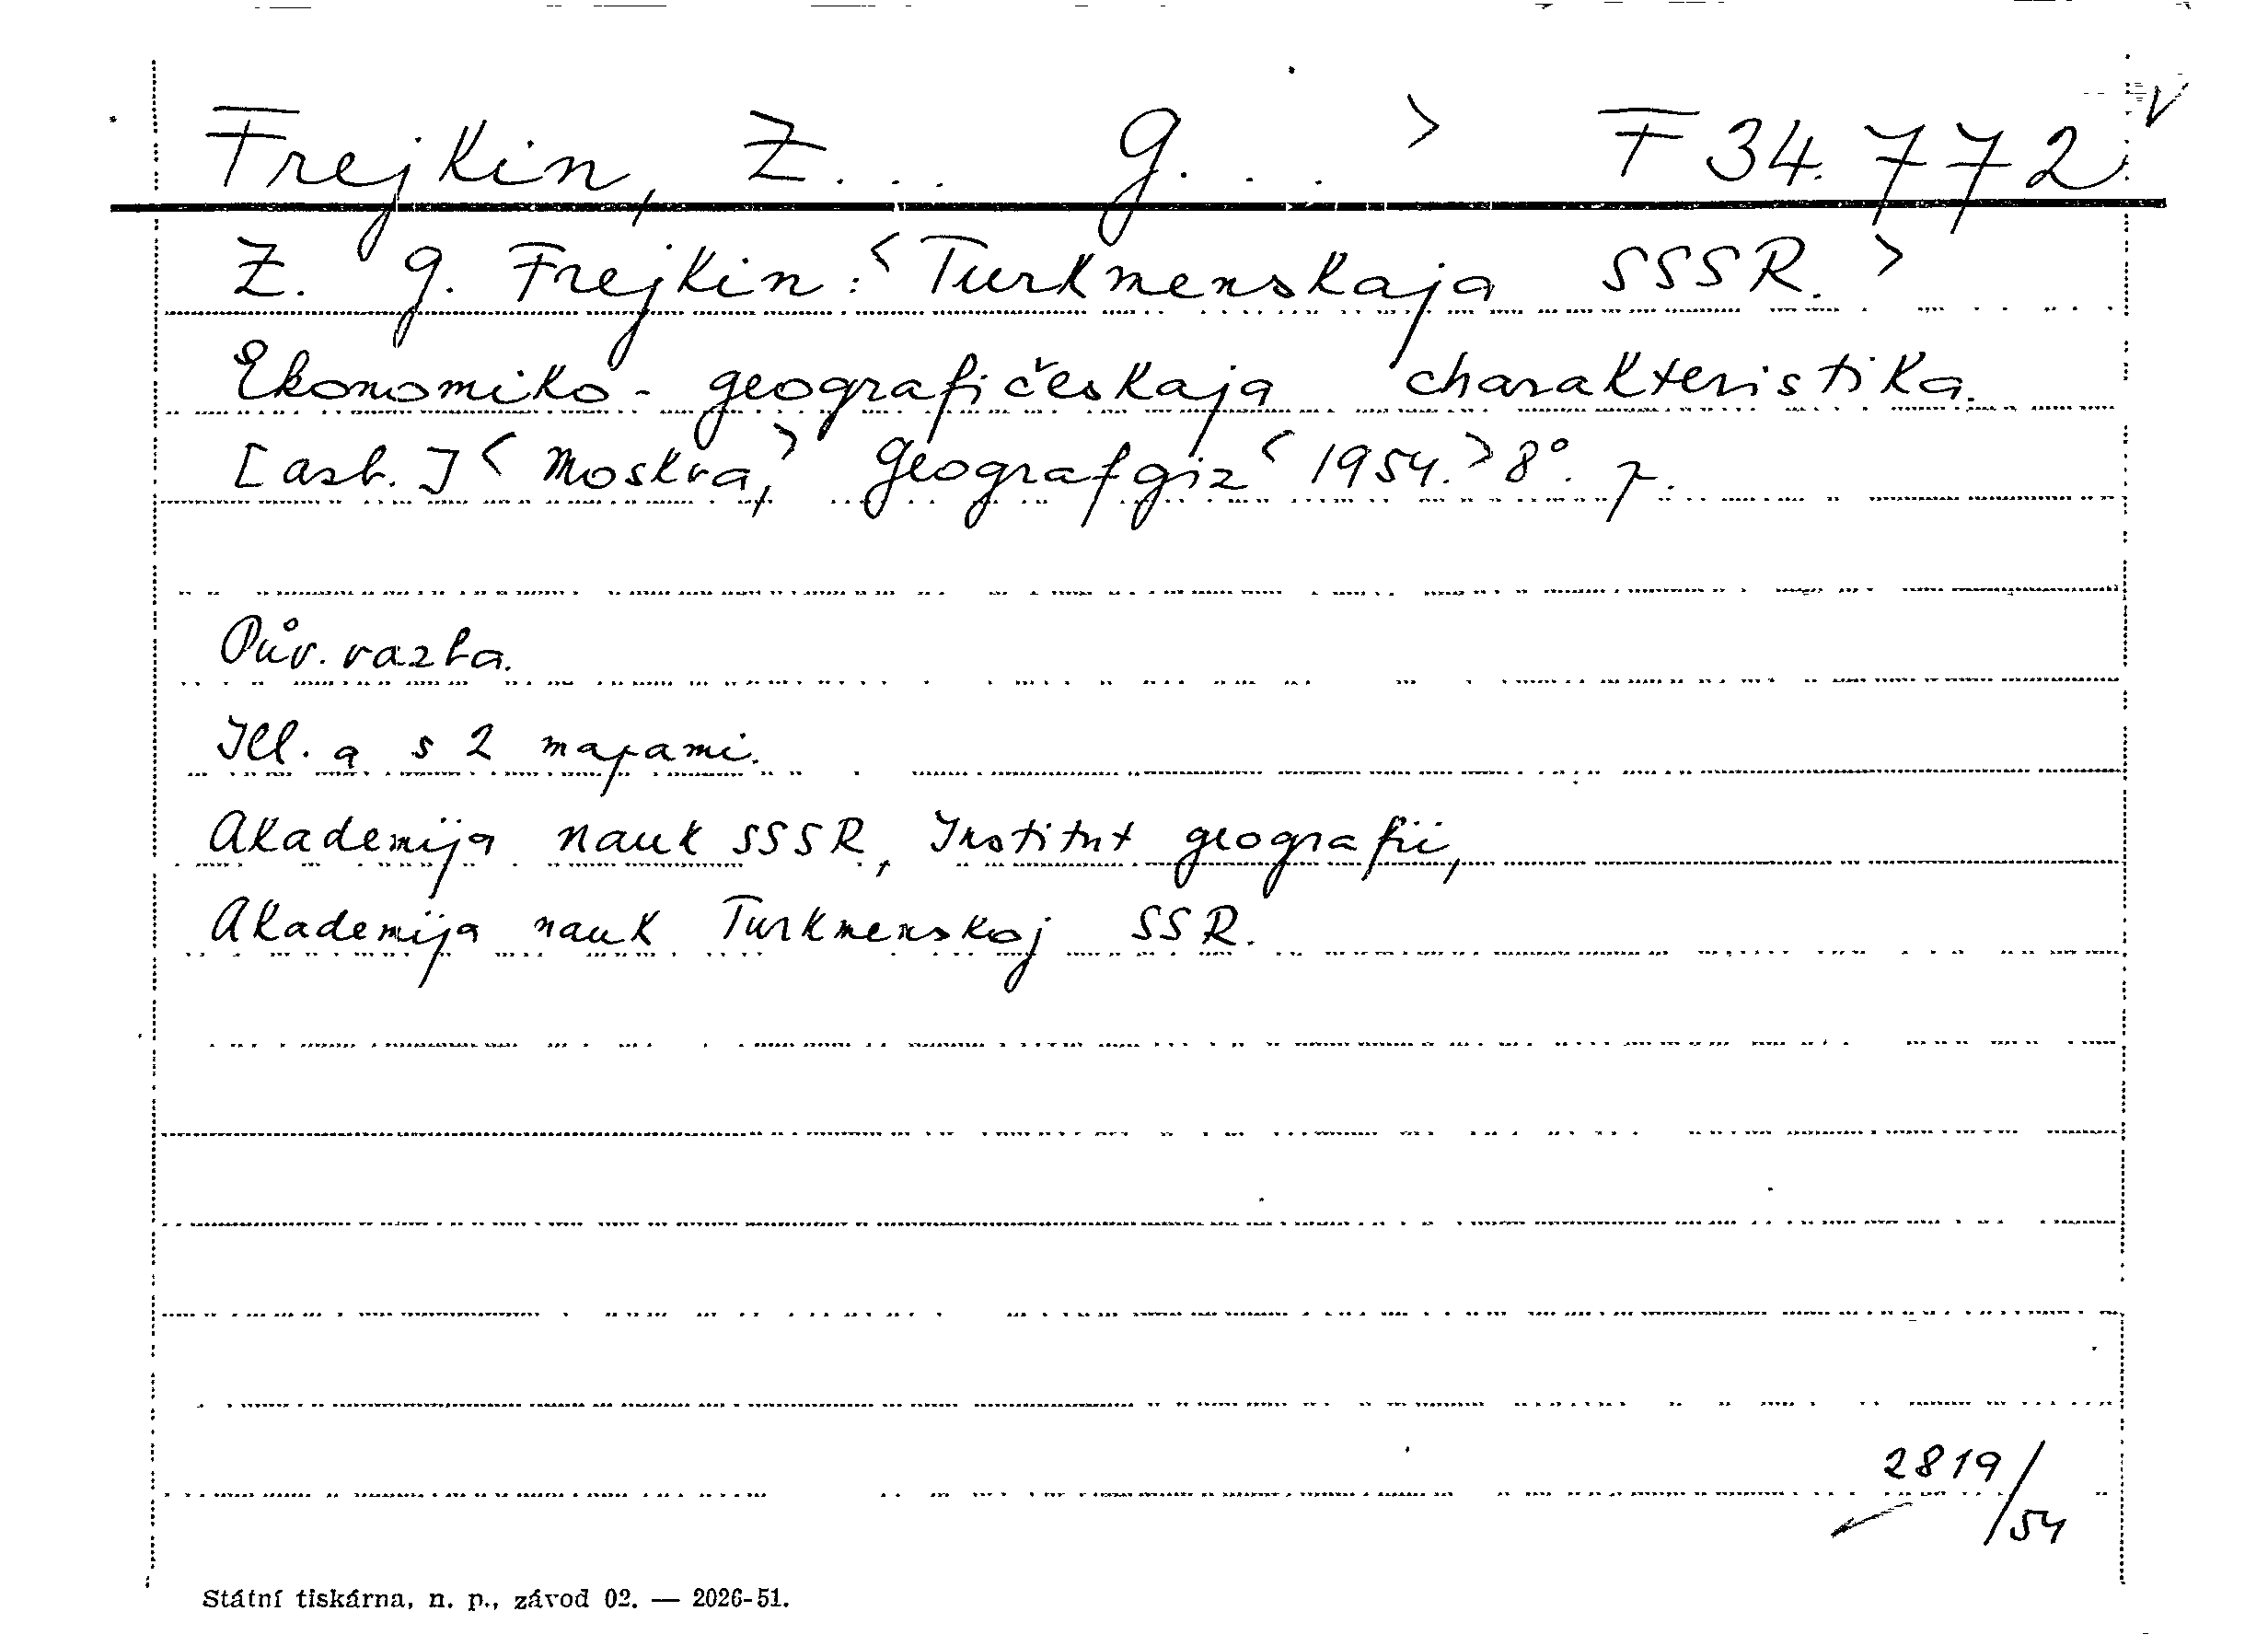 Frejkin, Z... G... > F 34.772 V
Z. G. Frejkin: <Turkmenskaja SSSR.>
Ekonomiko-geografičeskaja charakteristika.
[azb.] <Moskva,> Geografgiz <1954.> 8°. p.
Pův. vazba.
Ill. a s 2 mapami.
Akademija nauk SSSR, Institut geografii,
Akademija nauk Turkmenskoj SSR.
2819/54
Státní tiskárna, n. p., závod 02. — 2026-51.